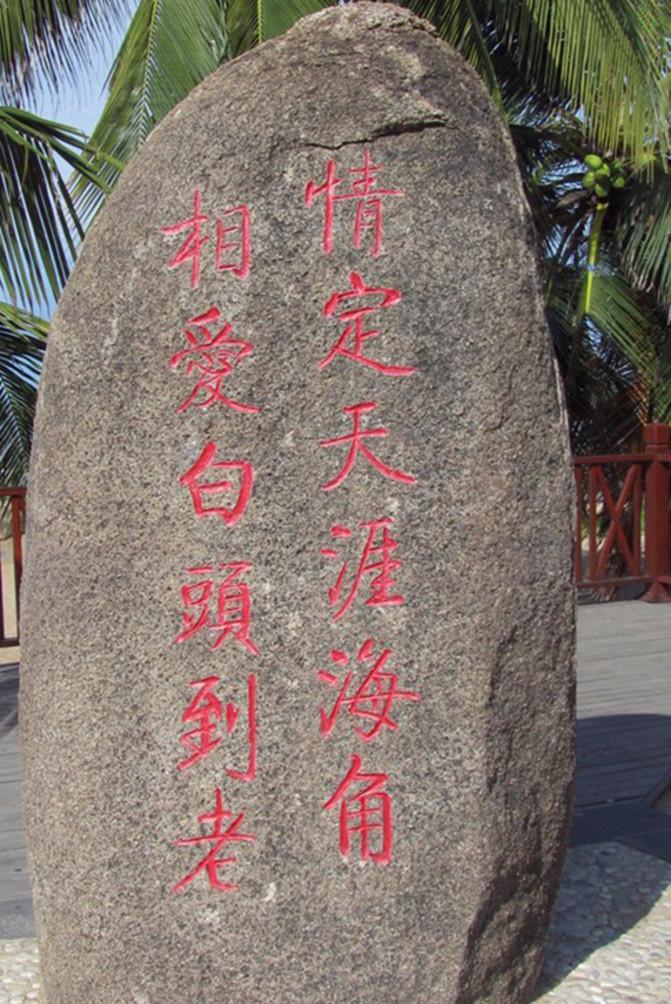 情定天涯海角
相愛白頭到老